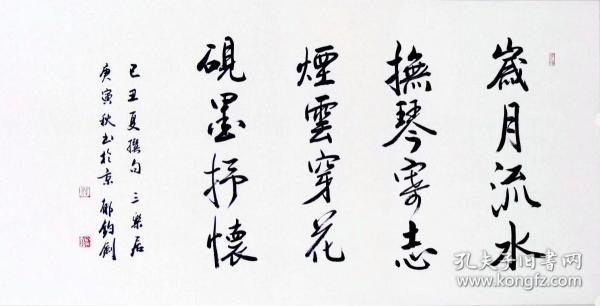 歲月流水
撫琴寄志
煙雲穿花
硯墨抒懷
己丑夏撰句 三樂居
庚寅秋書於京 鄺鈞劍
孔夫子旧书网
www.kongfz.com